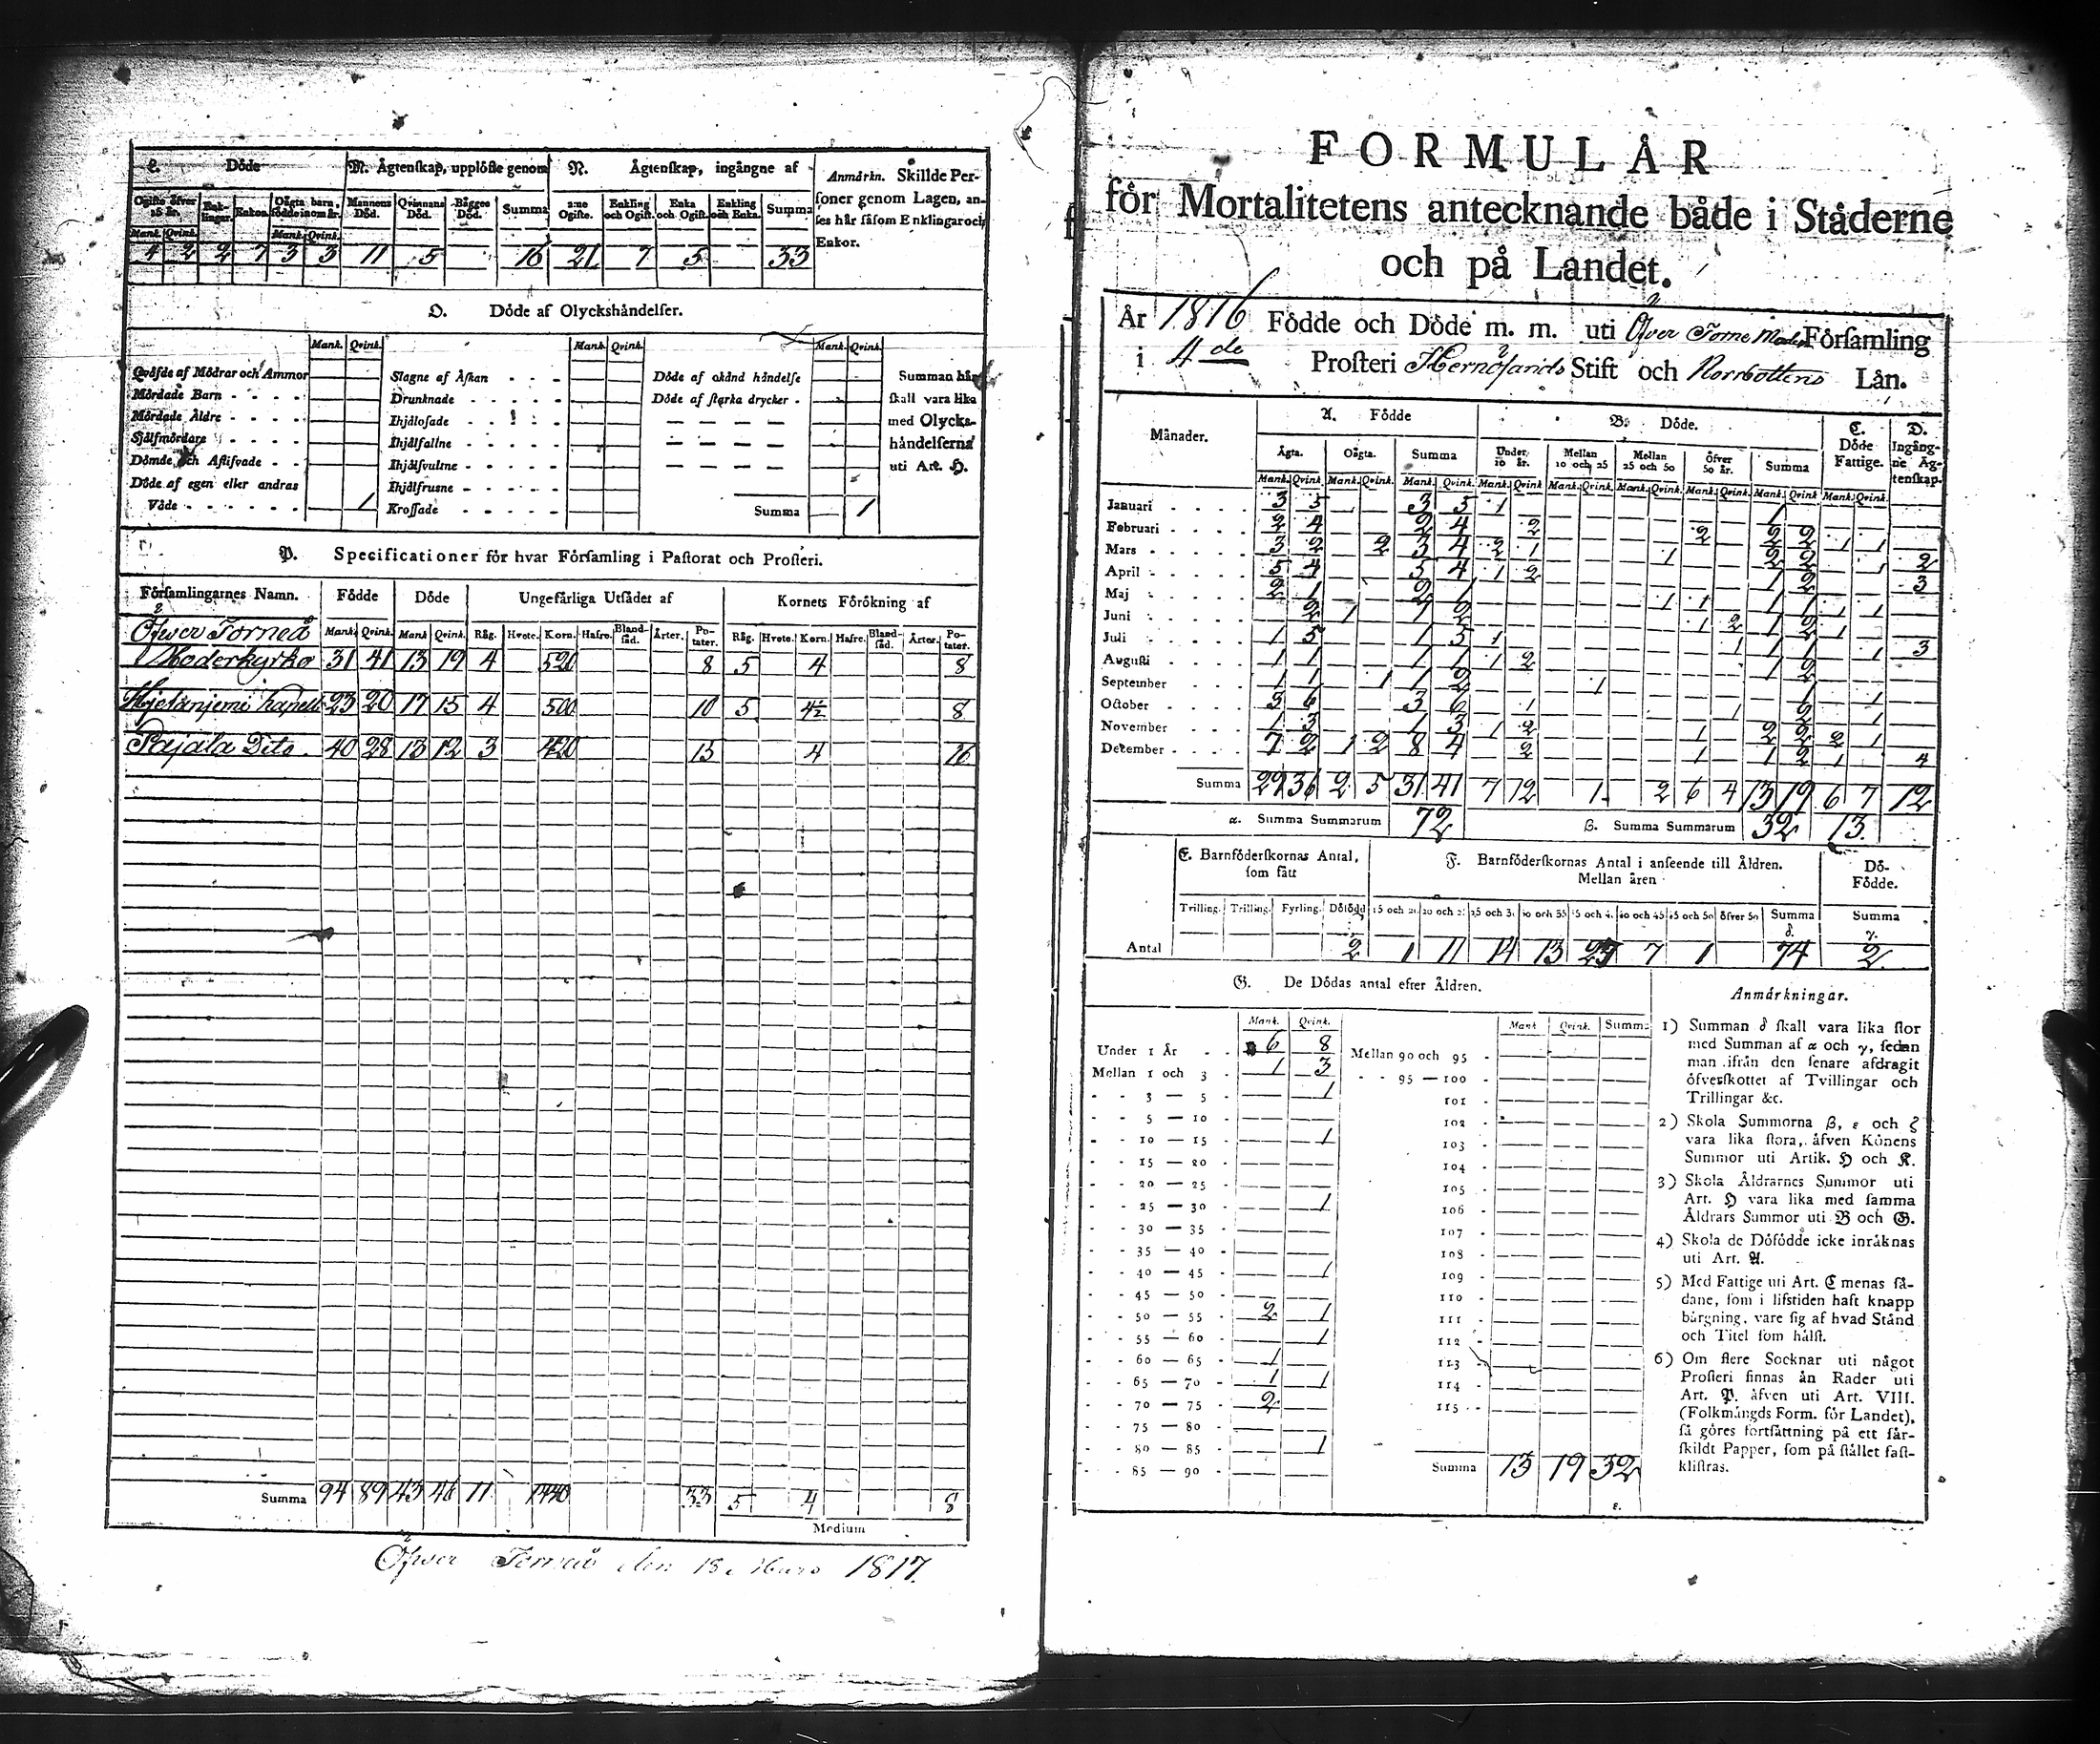 L. Döde
M. Ägtenskap, upplöste genom
N. Ägtenskap, ingångne af
Anmärkn. Skillde Per-
soner genom Lagen, an-
ses här såsom Enklingar och
Enkor.
Ogifte öfver 15 år. Enk- lingar. Enkor. Oägta barn, födde inom år. Mannens Död. Qvinnans Död. Bägges Död. Summa 2:ne Ogifte. Enkling och Ogift. Enka och Ogift. Enkling och Enka. Summa
Mank. Qvink. Mank. Qvink.
4 2 2 7 3 3 11 5 16 21 7 5 33
O. Döde af Olyckshändelser.
Mank. Qvink. Mank. Qvink. Mank. Qvink.
Qväfde af Mödrar och Ammor Slagne af Åskan Döde af okänd händelse Summan här
Mördade Barn Drunknade Döde af starka drycker skall vara lika
Mördade Äldre Ihjälosade med Olycks-
Sjelfmördare Ihjälfallne händelserna
Dömde och Aflifvade Ihjälsvultne uti Art. H.
Döde af egen eller andras Ihjälfrusne
Våde 1 Krossade Summa 1
P. Specificationer för hvar Församling i Pastorat och Prosteri.
Församlingarnes Namn. Födde Döde Ungefärliga Utsädet af Kornets Förökning af
Öfwer Torneå Mank. Qvink. Mank. Qvink. Råg. Hvete. Korn. Hafre. Bland- säd. Ärter. Po- tater. Råg. Hvete. Korn. Hafre. Bland- säd. Ärter. Po- tater.
Moderkyrka 31 41 13 19 4 520 8 5 4 8
Hjetanjemi Kapell 23 20 17 15 4 500 10 5 4½ 8
Pajala Dito. 40 28 13 12 3 420 15 4 16
Summa 94 89 43 46 11 1440 33 5 4 8
Medium
Öfwer Torneå den 13 Mars 1817.
FORMULÄR
för Mortalitetens antecknande både i Städerne
och på Landet.
År 1816 Födde och Döde m. m. uti Öfver Torne Moder Församling
i 4de Prosteri Hernösands Stift och Norrbottens Län.
Månader. A. Födde B. Döde. C. Döde Fattige. D. Ingång- ne Äg- tenskap.
Ägta. Oägta. Summa Under 10 år. Mellan 10 och 25 Mellan 25 och 50 Öfver 50 år. Summa
Mank. Qvink. Mank. Qvink. Mank. Qvink. Mank. Qvink. Mank. Qvink. Mank. Qvink. Mank. Qvink. Mank. Qvink. Mank. Qvink.
Januari 3 5 3 5 1 1
Februari 2 4 2 4 2 2 2 2 1 1
Mars 3 2 2 3 4 2 1 1 2 2 1 2
April 5 4 5 4 1 2 1 2 3
Maj 2 1 2 1 1 1 1 1 1 1
Juni 2 1 1 2 1 2 1 2 1
Juli 1 5 1 5 1 1 1 1 1 3
Augusti 1 1 1 1 1 2 1 2
September 1 1 1 1 2 1 1 1
October 3 6 3 6 1 1 2 1
November 1 3 1 3 1 2 1 2 2 2 1
December 7 2 1 2 8 4 2 1 1 2 1 4
Summa 29 36 2 5 31 41 7 12 1 2 6 4 13 19 6 7 12
α. Summa Summarum 72 β. Summa Summarum 32 13
E. Barnföderskornas Antal, som fått
F. Barnföderskornas Antal i anseende till Åldren. Mellan åren
Dö- Födde.
Tvilling. Trilling. Fyrling. Dödfödd 15 och 20 20 och 25 25 och 30 30 och 35 35 och 40 40 och 45 45 och 50 öfver 50 Summa δ. Summa γ.
Antal 2 1 11 14 13 27 7 1 74 2
G. De Dödas antal efter Åldren.
Mank. Qvink. Mank. Qvink. Summa
Under 1 År 6 8 Mellan 90 och 95
Mellan 1 och 3 1 3 95 — 100
3 — 5 1 101
5 — 10 102
10 — 15 1 103
15 — 20 104
20 — 25 105
25 — 30 1 106
30 — 35 107
35 — 40 108
40 — 45 1 109
45 — 50 110
50 — 55 2 1 111
55 — 60 1 112
60 — 65 1 113
65 — 70 1 1 114
70 — 75 2 115
75 — 80
80 — 85 1
85 — 90 Summa 13 19 32
ε.
Anmärkningar.
1) Summan δ skall vara lika stor
med Summan af α och γ, sedan
man ifrån den senare afdragit
öfverskottet af Tvillingar och
Trillingar &c.
2) Skola Summorna β, ε och ζ
vara lika stora, äfven Könens
Summor uti Artik. H och K.
3) Skola Åldrarnes Summor uti
Art. H vara lika med samma
Åldrars Summor uti B och G.
4) Skola de Döfödde icke inräknas
uti Art. A.
5) Med Fattige uti Art. C menas så-
dane, som i lifstiden haft knapp
bärgning, vare sig af hvad Stånd
och Titel som hälst.
6) Om flere Socknar uti något
Prosteri finnas än Rader uti
Art. P. äfven uti Art. VIII.
(Folkmängds Form. för Landet),
så göres fortsättning på ett sär-
skildt Papper, som på stället fast-
klistras.